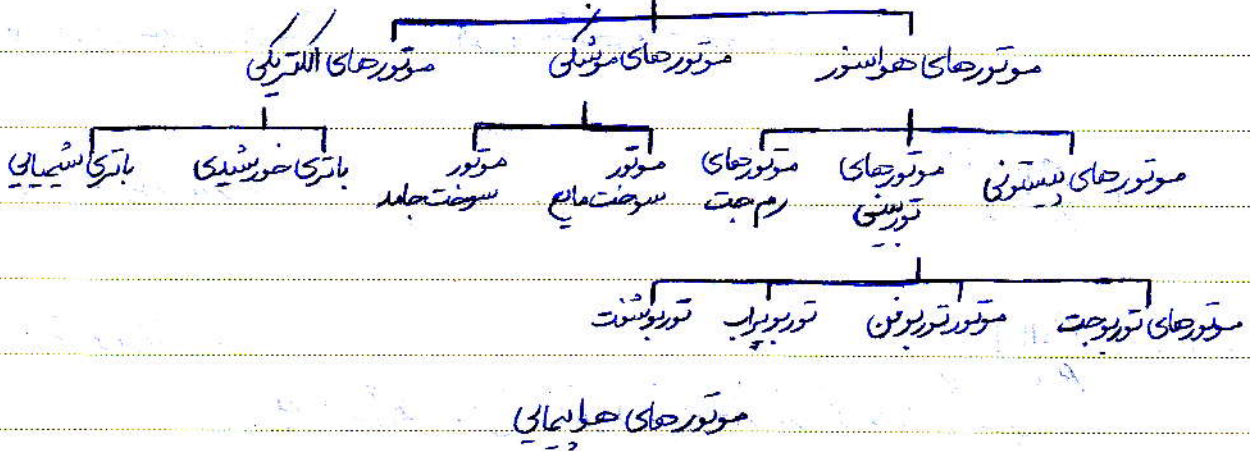 موتورهای هواسوز موتورهای موشکی موتورهای الکتریکی
موتورهای پیستونی موتورهای توربینی موتورهای رم جت موتور سوخت مایع موتور سوخت جامد باتری خورشیدی باتری شیمیایی
موتورهای توربوجت موتور توربوفن توربوپراپ توربوشفت
موتورهای هواپیمایی